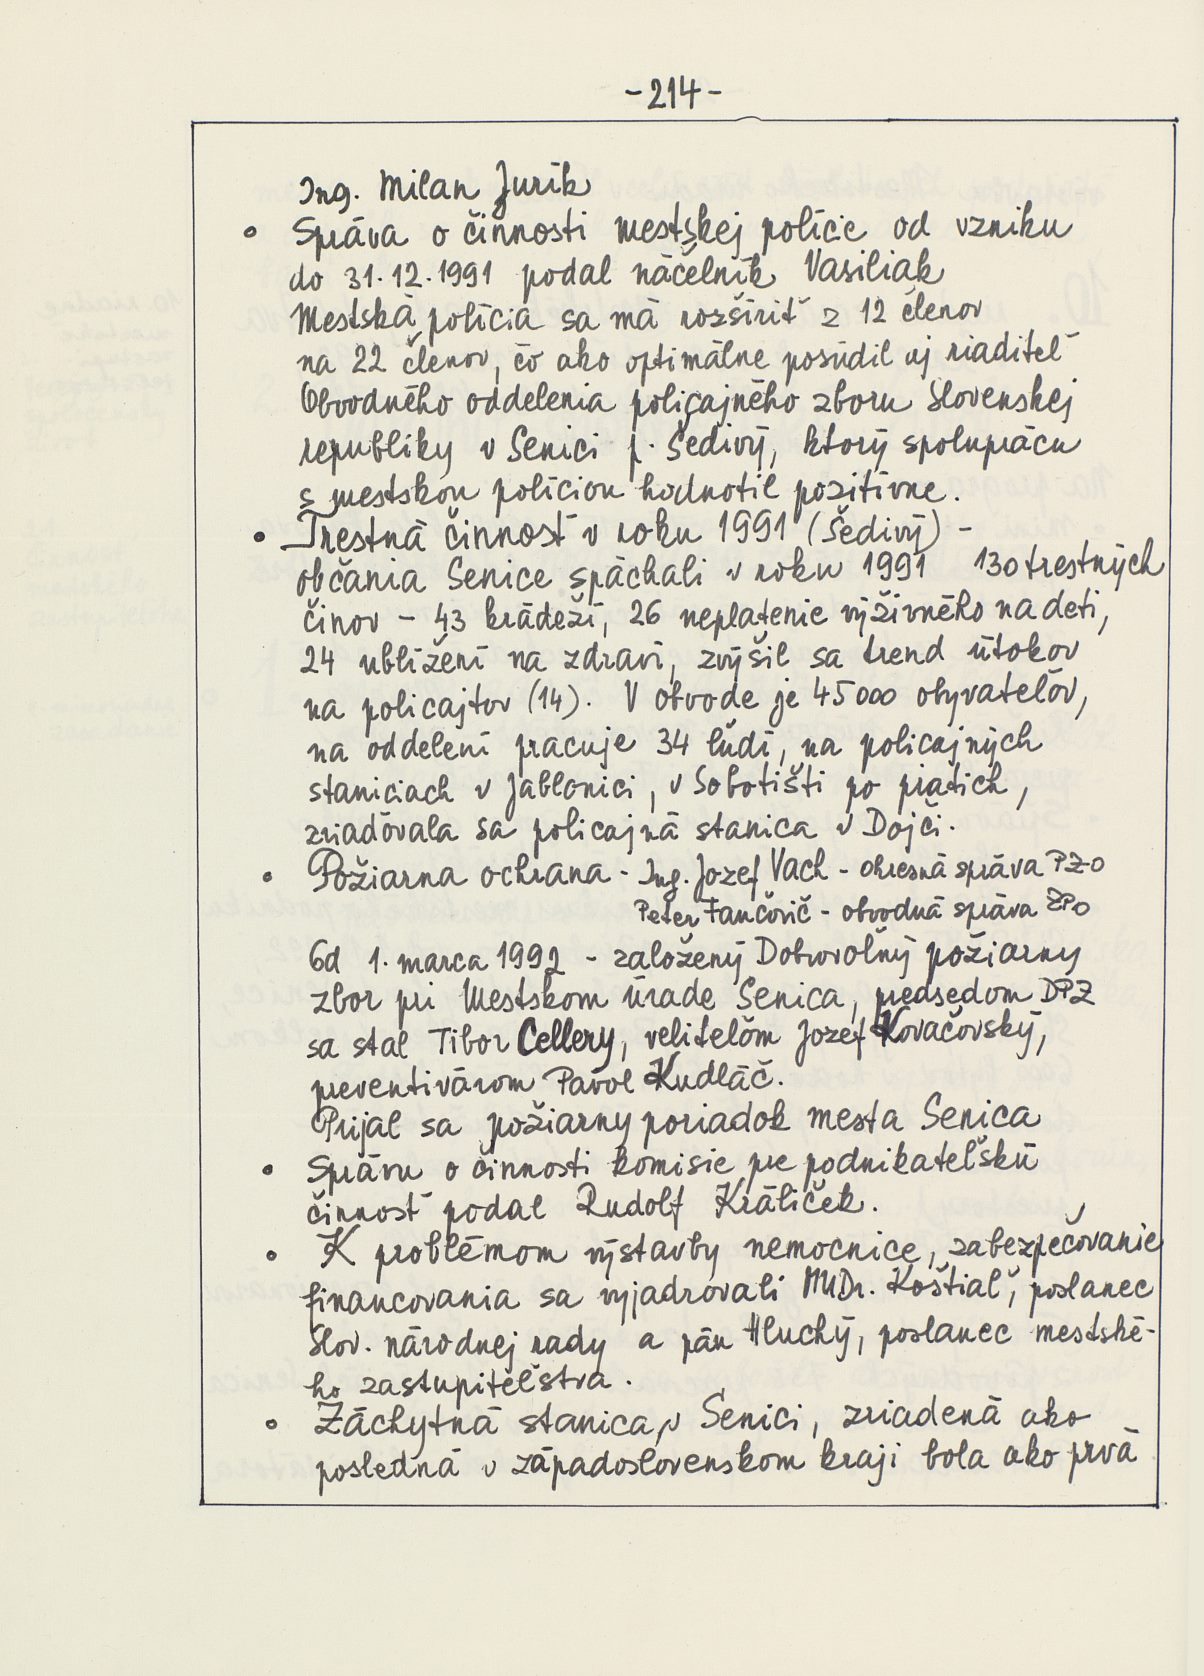 -214-
Ing. Milan Jurík
• Správa o činnosti mestskej polície od vzniku
do 31.12.1991 podal náčelník Vasiliak
Mestská polícia sa má rozšíriť z 12 členov
na 22 členov, čo ako optimálne posúdil aj riaditeľ
Obvodného oddelenia policajného zboru Slovenskej
republiky v Senici p. Šedivý, ktorý spoluprácu
s mestskou políciou hodnotil pozitívne.
• Trestná činnosť v roku 1991 (Šedivý) -
občania Senice spáchali v roku 1991 130 trestných
činov - 43 krádeží, 26 neplatenie výživného na deti,
24 ublížení na zdraví, zvýšil sa trend útokov
na policajtov (14). V obvode je 45 000 obyvateľov,
na oddelení pracuje 34 ľudí, na policajných
staniciach v Jablonici, v Sobotišti po piatich,
zriaďovala sa policajná stanica v Dojči.
• Požiarna ochrana - Ing. Jozef Vach - okresná správa PZO
Peter Fančovič - obvodná správa ZPO
Od 1. marca 1992 - založený Dobrovoľný požiarny
zbor pri Mestskom úrade Senica, predsedom DPZ
sa stal Tibor Cellery, veliteľom Jozef Kovačovský,
preventivárom Pavol Kudláč.
Prijal sa požiarny poriadok mesta Senica
• Správu o činnosti komisie pre podnikateľskú
činnosť podal Rudolf Králiček.
• K problémom výstavby nemocnice, zabezpečovanie
financovania sa vyjadrovali MUDr. Koštiaľ, poslanec
Slov. národnej rady a pán Hluchý, poslanec mestské-
ho zastupiteľstva.
• Záchytná stanica v Senici, zriadená ako
posledná v západoslovenskom kraji bola ako prvá